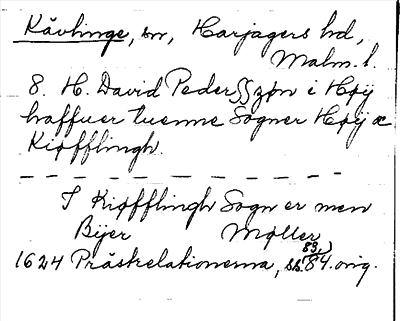 Kävlinge, sn, Harjagers hd,
Malm. l.
8. H. David Pederßzøn i Høÿ
haffuer tuenne Sogner Høÿ æ
Kiøfflingh.
I Kiøfflingh Sogn er men
Bÿer Møller
83,
1624 Prästrelationerna, ss. 84. orig.